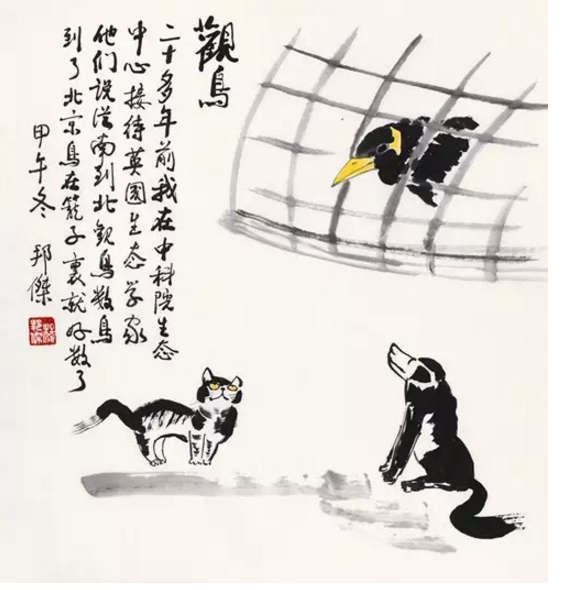 觀鳥
二十多年前我在中科院生态
中心接待英國生态学家
他们说從南到北觀鳥数鳥
到了北京鳥在籠子裏就好数了
甲午冬 邦傑